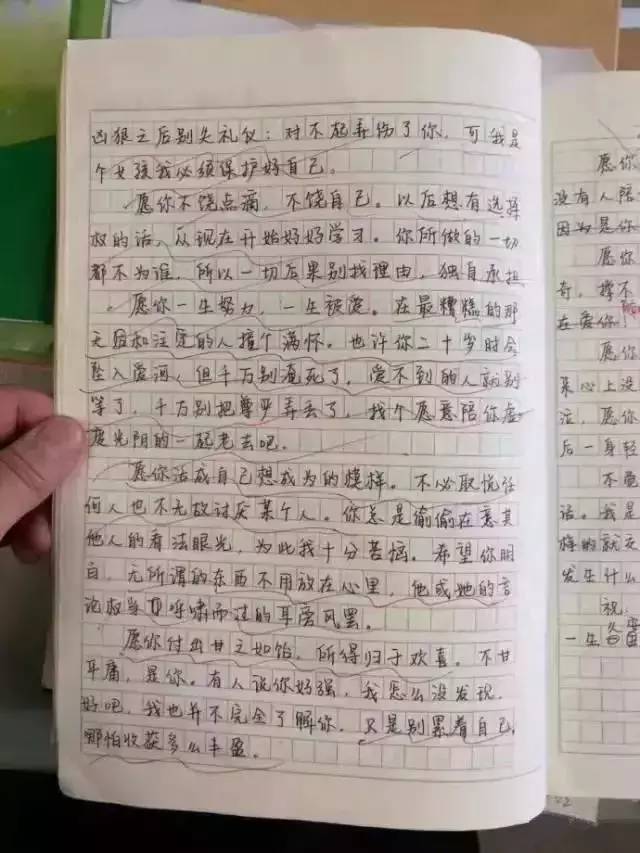 凶狠之后别失礼仪：对不起弄伤了你，可我是
个女孩我必须保护好自己。
愿你不饶点病，不饶自己。以后想有选择
权的话，从现在开始好好学习。你所做的一切
都不为谁，所以一切后果别找理由，独自承担
愿你一生努力，一生被爱。在最糟糕的那
天里和注定的人撞个满怀。也许你二十岁时会
坠入爱河，但千万别淹死了，爱不到的人就别
等了，千万别把尊严弄丢了，找个愿意陪你虚
度光阴的一起老去吧。
愿你活成自己想成为的模样。不必取悦任
何人也不无故讨厌某个人。你总是偷偷在意其
他人的看法眼光，为此我十分苦恼。希望你明
白，无所谓的东西不用放在心里，他或她的言
论权当呼啸而过的耳旁风罢。
愿你付出甘之如饴，所得归于欢喜。不甘
平庸，是你。有人说你好强，我怎么没发现，
好吧，我也并不完全了解你，只是别累着自己，
哪怕收获多么丰盈。
愿你
没有人陪
因为是你
愿你
奇，撑不
在爱你
愿你
某心上没
泣，愿你
后一身轻
不
话。我是
旖的就
发生什么
祝：
一生